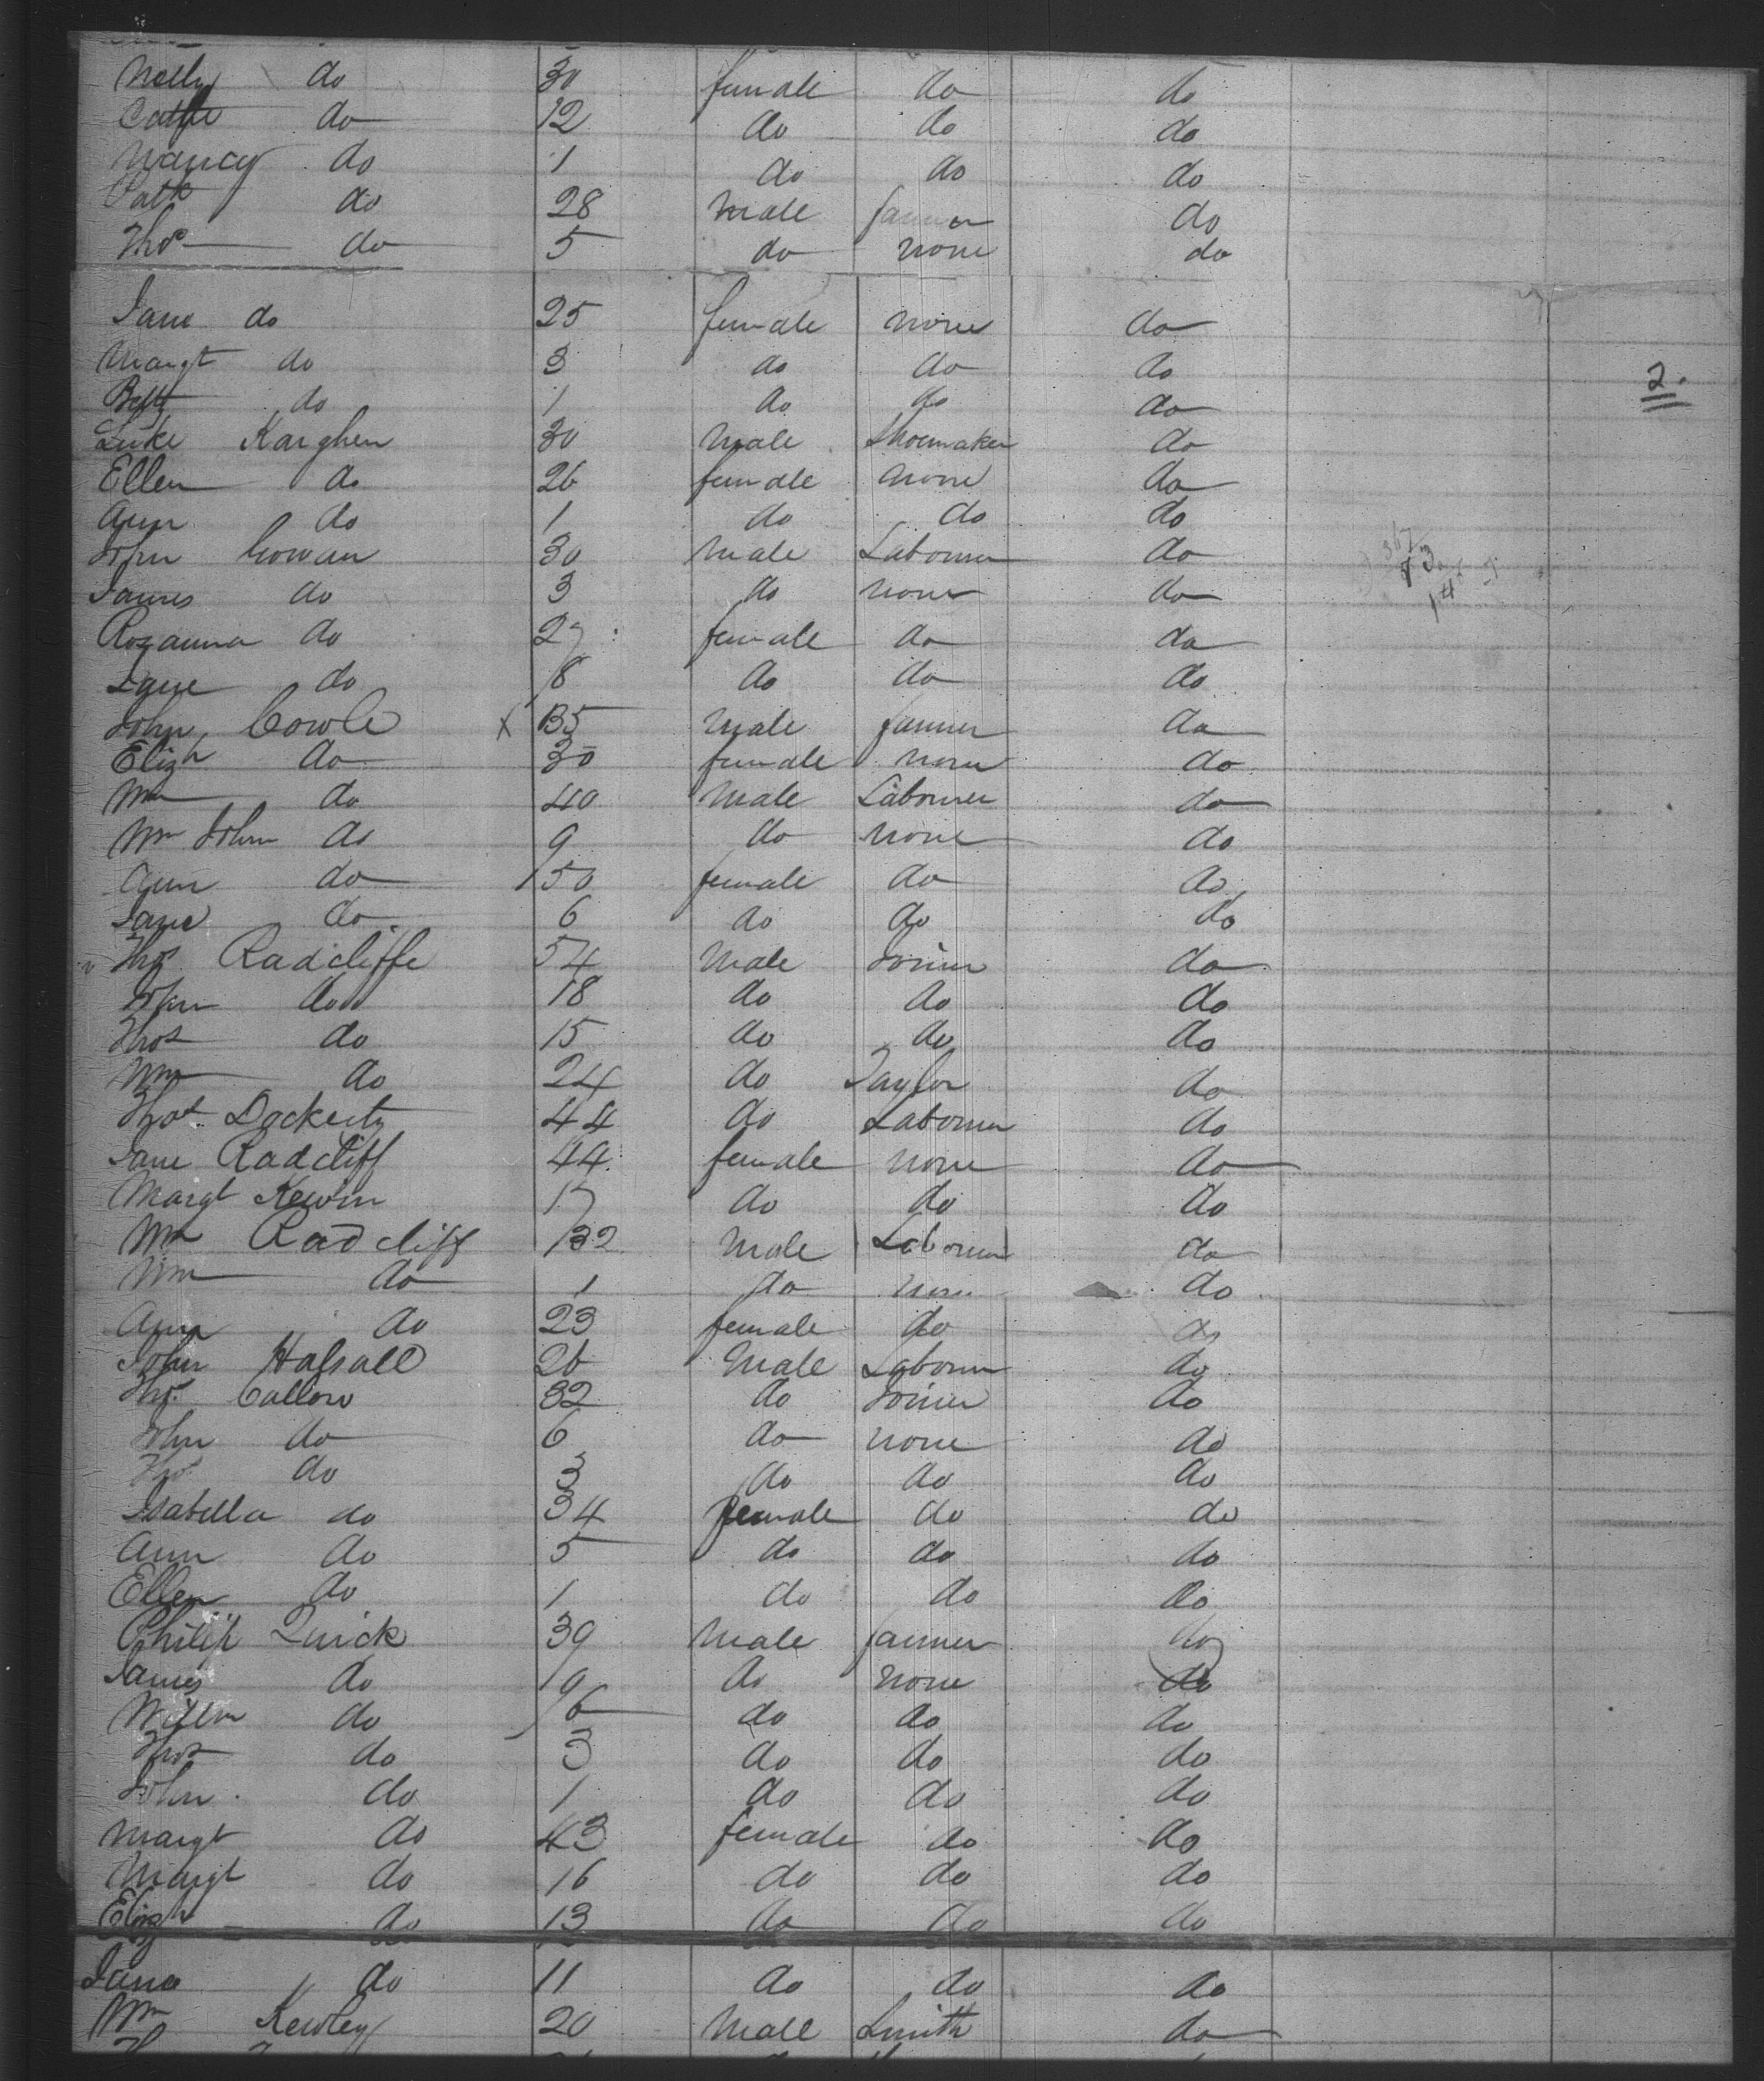 Nelly do 30 female do do
Cathe do 12 do do do
Nancy do 1 do do do
Patk do 28 Male farmer do
Thos do 5 do none do
Jane do 25 female none do
Margt do 3 do do do
Betty do 1 do do do
Luke Karghen 30 Male Shoemaker do
Ellen do 26 female none do
Ann do 1 do do do
John Cowan 30 Male Labourer do
James do 3 do none do
Rozanna do 27 female do do
Jane do 8 do do do
John Cowle X 35 Male farmer do
Elizh do 30 female none do
Wm do 40 Male Labourer do
Wm John do 9 do none do
Ann do 50 female do do
Jane do 6 do do do
Thos Radcliffe 54 Male Joiner do
John do 18 do do do
Thos do 15 do do do
Wm do 24 do Taylor do
Thos Dockerty 44 do Labourer do
Jane Radcliff 44 female none do
Margt Kewin 17 do do do
Wm Radcliff 32 Male Labourer do
Wm do 1 do none do
Ann do 23 female do do
John Halsall 26 Male Labourer do
Thos Callow 32 do Joiner do
John do 6 do none do
Thos do 3 do do do
Isabella do 34 female do do
Ann do 5 do do do
Ellen do 1 do do do
Philip Quick 39 Male farmer do
James do 9 do none do
Willm do 6 do do do
Thos do 3 do do do
John do 1 do do do
Margt do 43 female do do
Margt do 16 do do do
Elizh do 13 do do do
Jane do 11 do do do
Wm Kewley 20 Male Smith do
2.
73
14